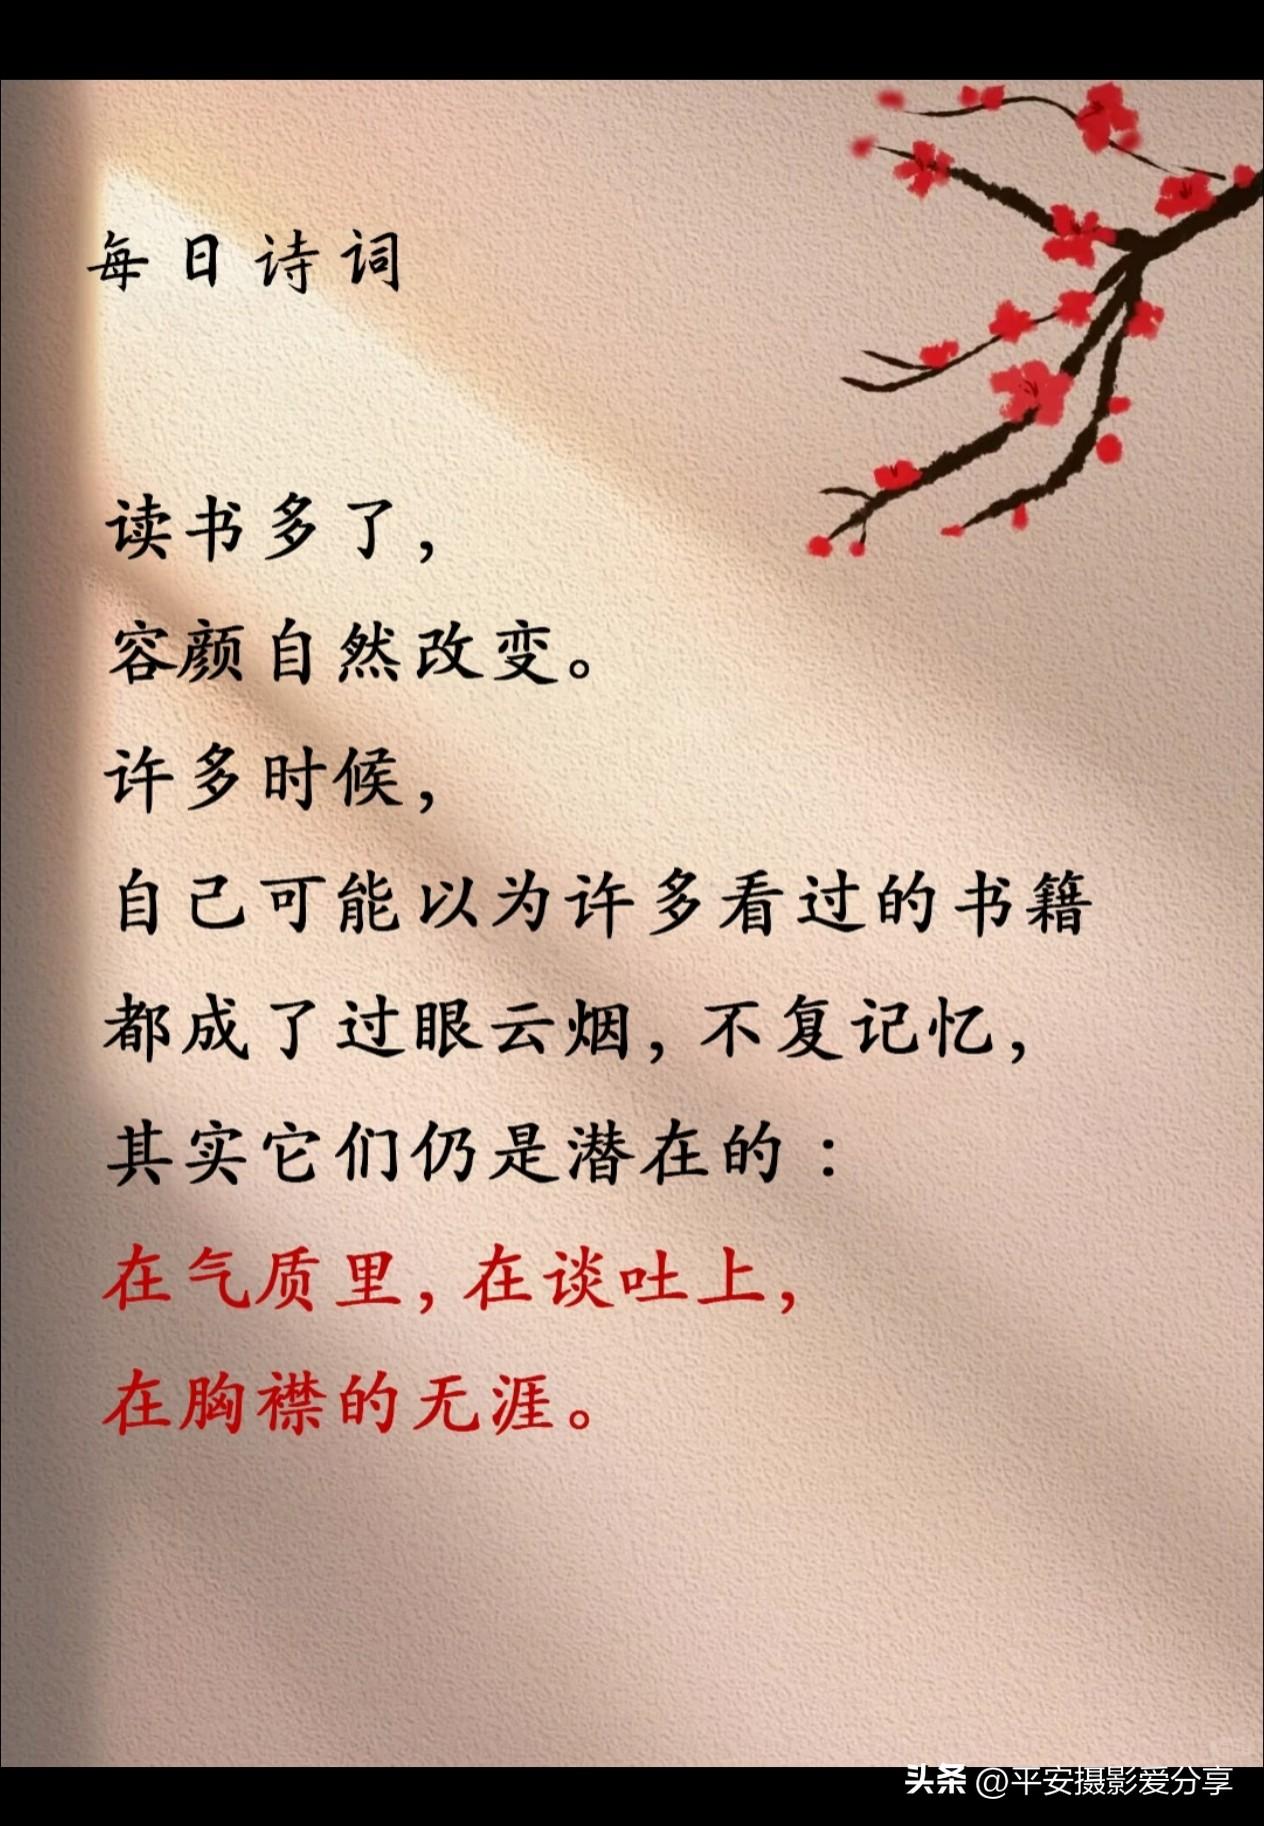 每日诗词
读书多了，
容颜自然改变。
许多时候，
自己可能以为许多看过的书籍
都成了过眼云烟，不复记忆，
其实它们仍是潜在的：
在气质里，在谈吐上，
在胸襟的无涯。
头条 @平安摄影爱分享